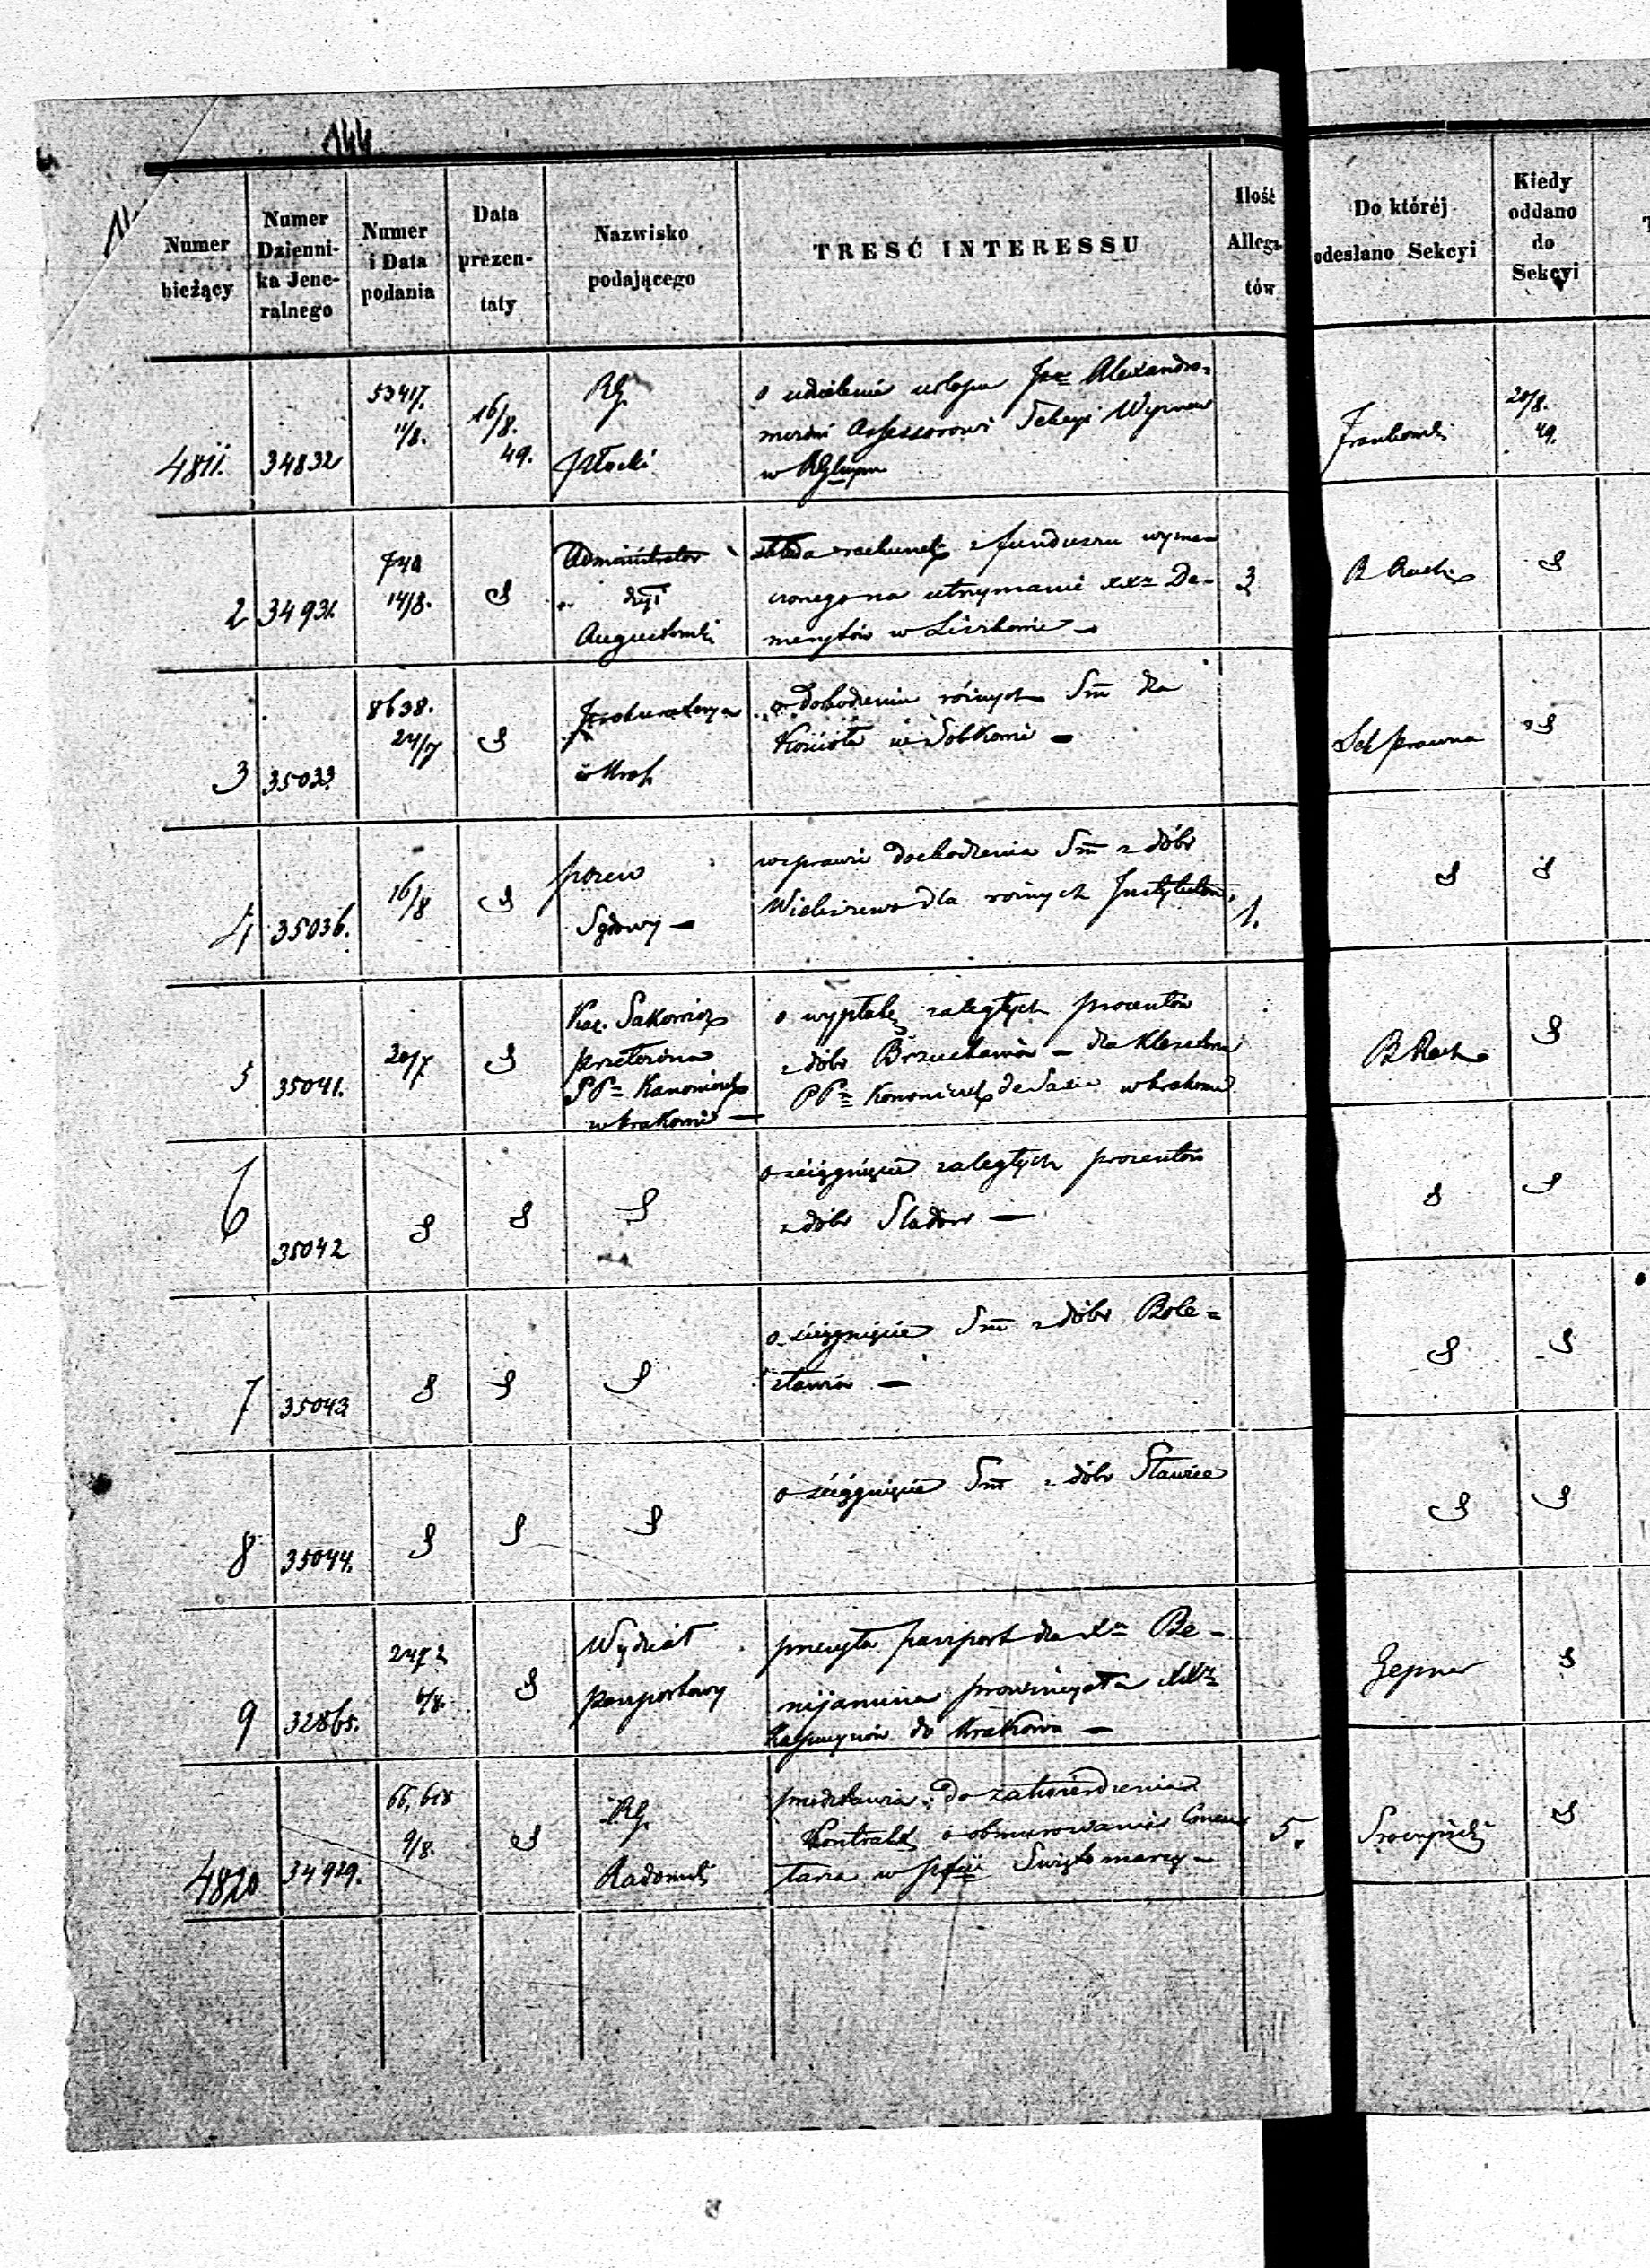 144
Numer bieżący
Numer Dzienni-ka Jene-ralnego
Numer i Data podania
Data prezen-taty
Nazwisko podającego
TRESĆ INTERESSU
Ilość Allega-tów
Do któréj odesłano Sekcyi
Kiedy oddano do Sekcyi
4811. 34832 53417. 11/8. 16/8. 49. RG. Płocki
o udzielenie urlopu Alexandro-
Assessorowi Sekcyi Wyznań
w
20/8. 49.
2 34931. 740 14/8. Administrator dyi Augustowski
składa rachunek z funduszu wyzna-
czonego na utrzymanie XXy De-
merytów w Liszkowie —
3
B Rach
3 35033. 8638. 24/7 Prokuratorya w Król.
o dochodzeniu różnych Sm̄ dla
Kościoła w Sobkowie —
Sek prawna
4 35036. 16/8 pozew Sądowy —
w sprawie dochodzenia Sm̄ z dóbr
Wieliszewo dla różnych Instytutów.
1.
5 35041. 20/7 przełożona PP= Kanoniczek w Krakowie —
o wypłatę zaległych procentów
z dóbr — dla Klasztoru
PP= Kanoniczek de Saxia w Krakowie
B Rach
6 35042
o ściągnięcie zaległych procentów
z dóbr Sladow —
7 35043
o ściągnięcie Sm̄ z dóbr Bole=
sławia —
8 35044.
o ściągnięcie Sm̄ z dóbr Sławice
9 32865. 2472 6/8. Wydział Passportowy
przesyła passport dla X= Be-
nijamina prowincyała XX=
Kapucynów do Krakowa —
Gepner
4820 34929. 66,618 9/8. RG. Radomski
przedstawia do zatwierdzenia
Kontrakt o obmurowanie Cmen-
tarza w Swięto marzy-
5.